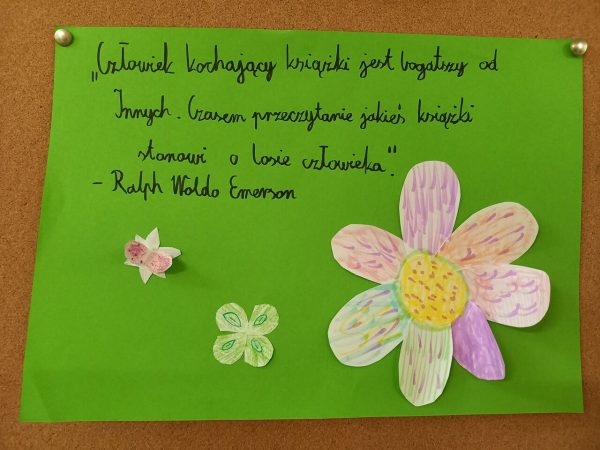 „Człowiek kochający książki jest bogatszy od
Innych. Czasem przeczytanie jakieś książki
stanowi o losie człowieka".
- Ralph Woldo Emerson